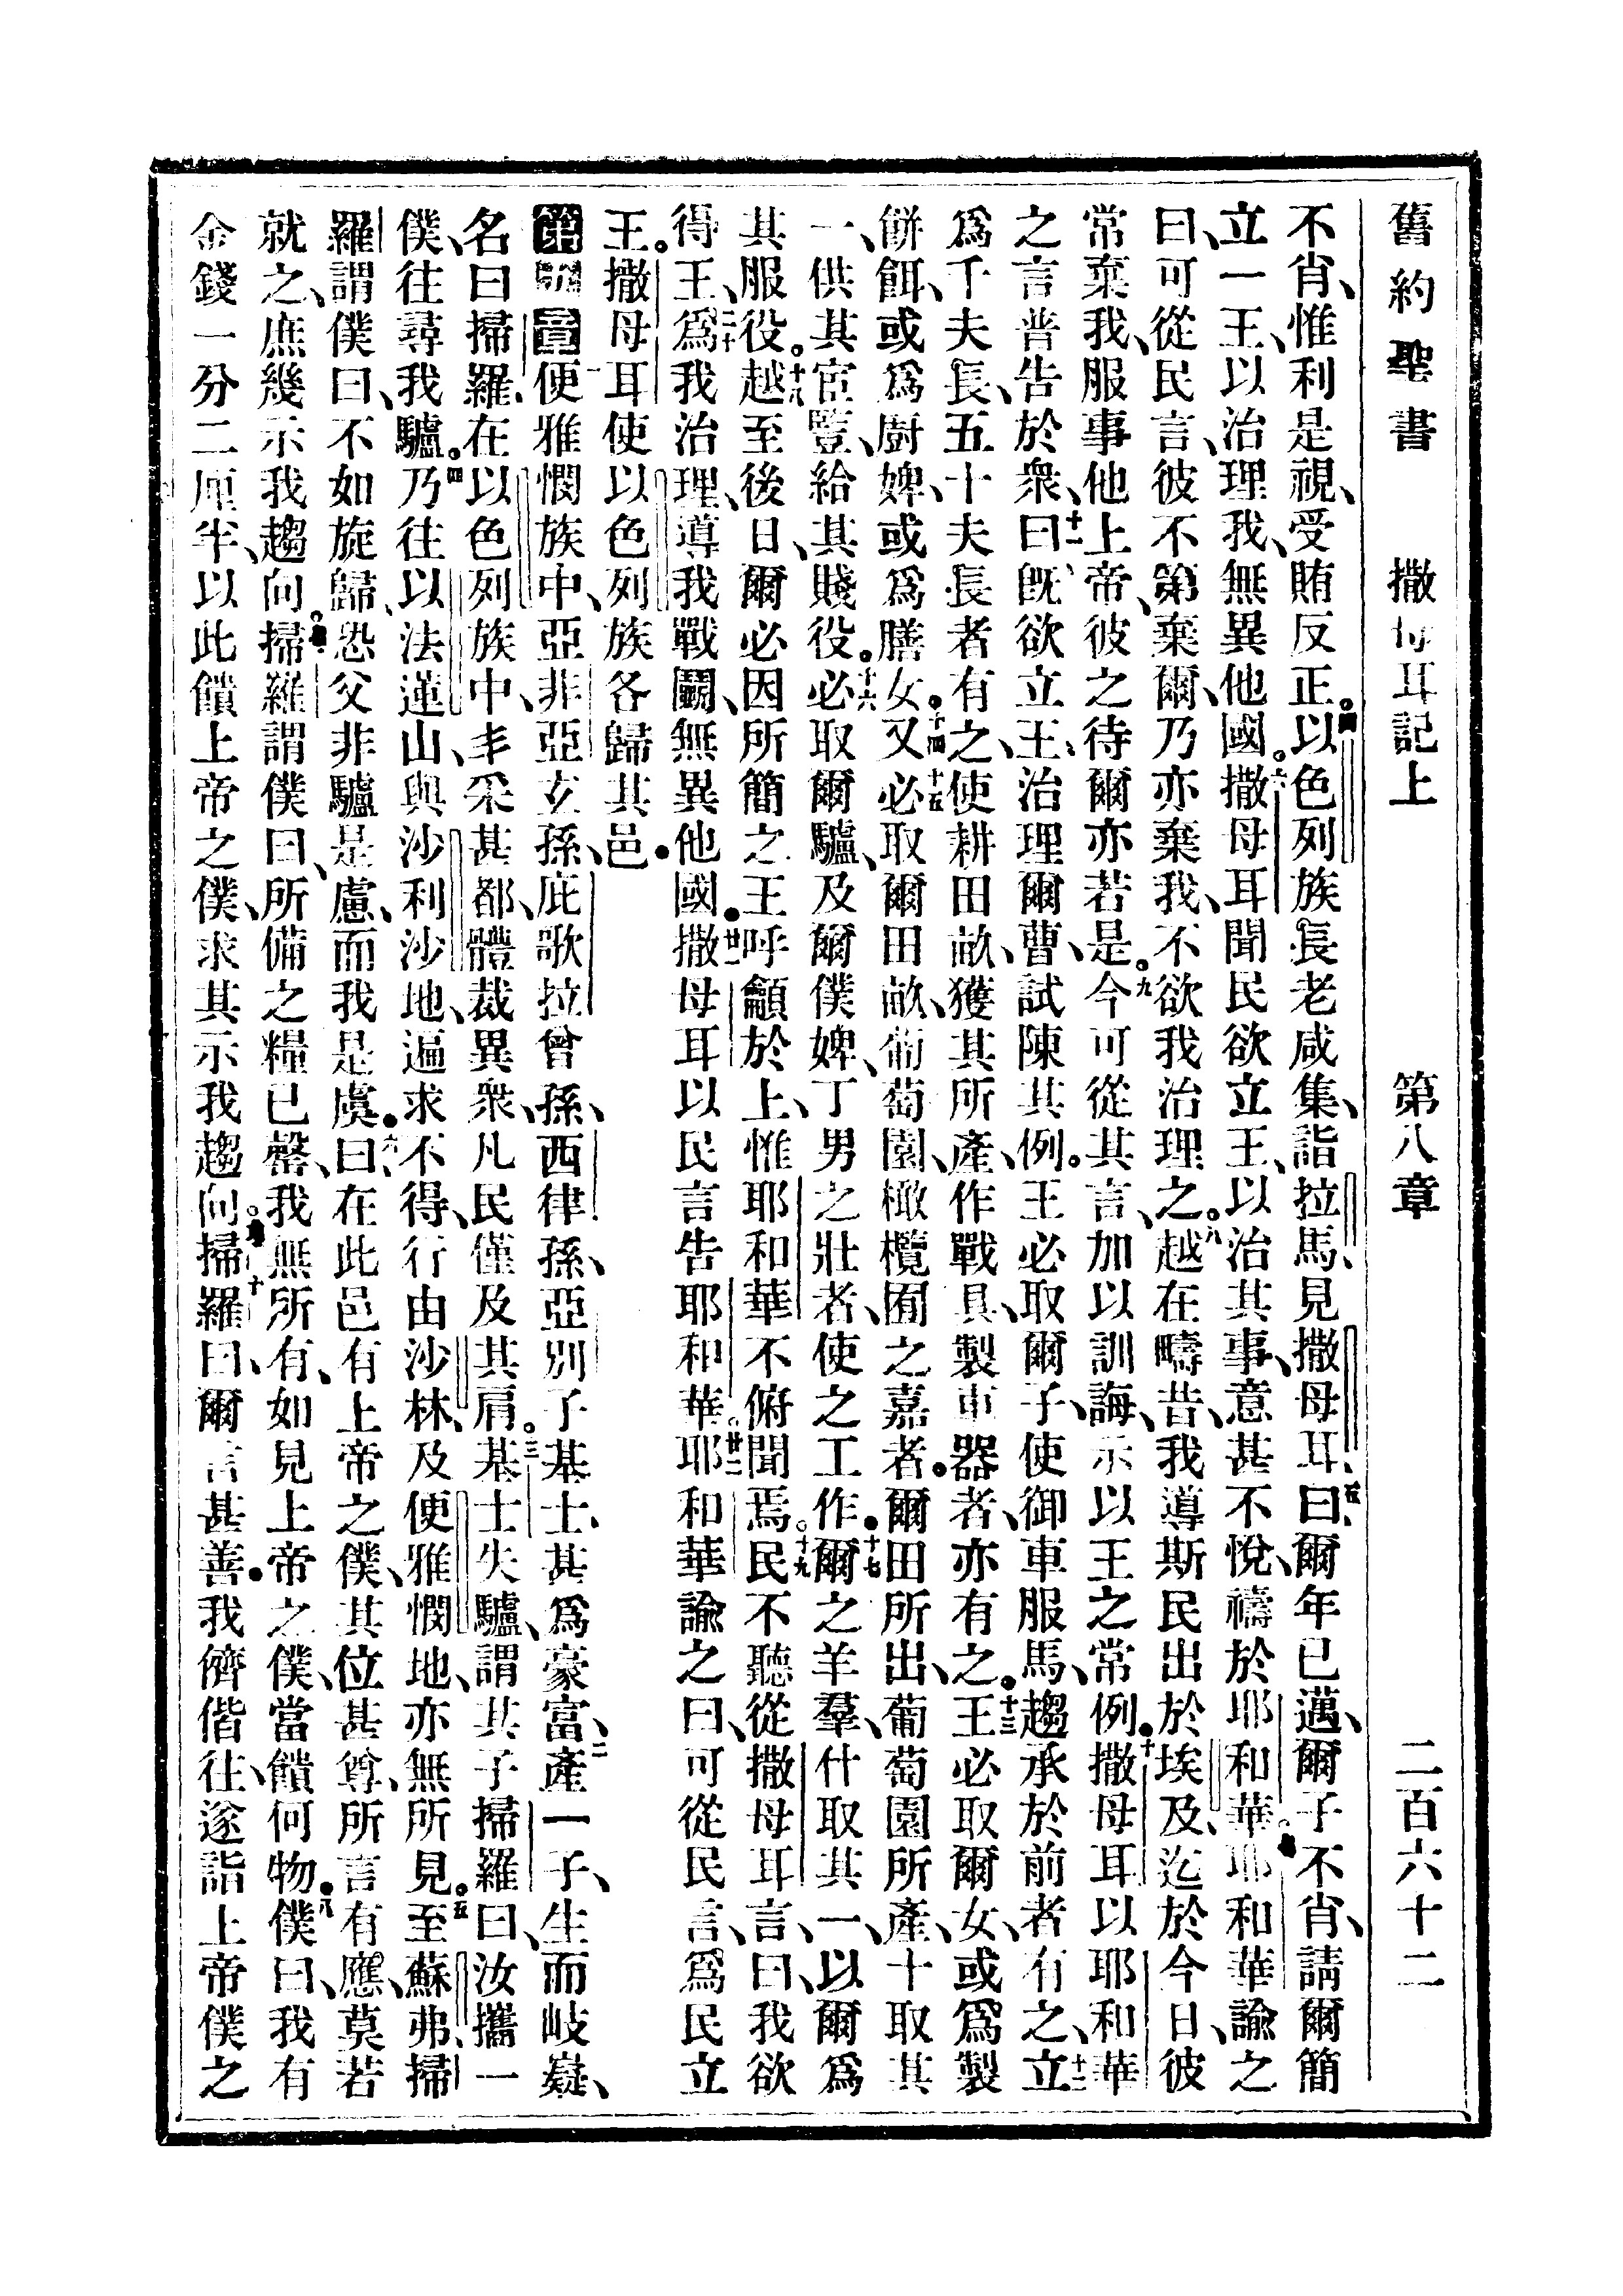 舊約聖書 撒母耳記上 第八章 二百六十二
不肖、惟利是視、受賄反正。四以色列族長老咸集、詣拉馬、見撒母耳、五曰、爾年已邁、爾子不肖、請爾簡
立一王、以治理我、無異他國。六撒母耳聞民欲立王、以治其事、意甚不悅、禱於耶和華。七耶和華諭之
曰、可從民言、彼不第棄爾、乃亦棄我、不欲我治理之。八越在疇昔、我導斯民出於埃及、迄於今日、彼
常棄我、服事他上帝、彼之待爾亦若是。九今可從其言、加以訓誨、示以王之常例。十撒母耳以耶和華
之言普告於衆、十一曰、旣欲立王、治理爾曹、試陳其例。王必取爾子、使御車服馬、趨承於前者有之、十二立
爲千夫長、五十夫長者有之、使耕田畝、獲其所產、作戰具、製車器者、亦有之。十三王必取爾女、或爲製
餅餌、或爲厨婢、或爲膳女。十四又必取爾田畝、葡萄園、橄欖囿之嘉者。十五爾田所出、葡萄園所產、十取其
一、供其宦豎、給其賤役。十六必取爾驢、及爾僕婢、丁男之壯者、使之工作。十七爾之羊羣、什取其一、以爾爲
其服役。十八越至後日、爾必因所簡之王、呼籲於上、惟耶和華不俯聞焉。十九民不聽從撒母耳言、曰、我欲
得王、二十爲我治理、導我戰鬭、無異他國。廿一撒母耳以民言告耶和華。廿二耶和華諭之曰、可從民言、爲民立
王。撒母耳使以色列族各歸其邑。
第九章一便雅憫族中、亞非亞玄孫、庇歌拉曾孫、西律孫、亞別子基士、甚爲豪富、二產一子、生而岐嶷、
名曰掃羅、在以色列族中、丰采甚都、體裁異衆、凡民僅及其肩。三基士失驢、謂其子掃羅曰、汝攜一
僕、往尋我驢。四乃往以法蓮山、與沙利沙地、遍求不得、行由沙林、及便雅憫地、亦無所見。五至蘇弗、掃
羅謂僕曰、不如旋歸、恐父非驢是慮、而我是虞。六曰、在此邑有上帝之僕、其位甚尊、所言有應、莫若
就之、庶幾示我趨向。七掃羅謂僕曰、所備之糧已罄、我無所有、如見上帝之僕、當饋何物。八僕曰、我有
金錢一分二厘半、以此饋上帝之僕、求其示我趨向。九十掃羅曰、爾言甚善。我儕偕往、遂詣上帝僕之